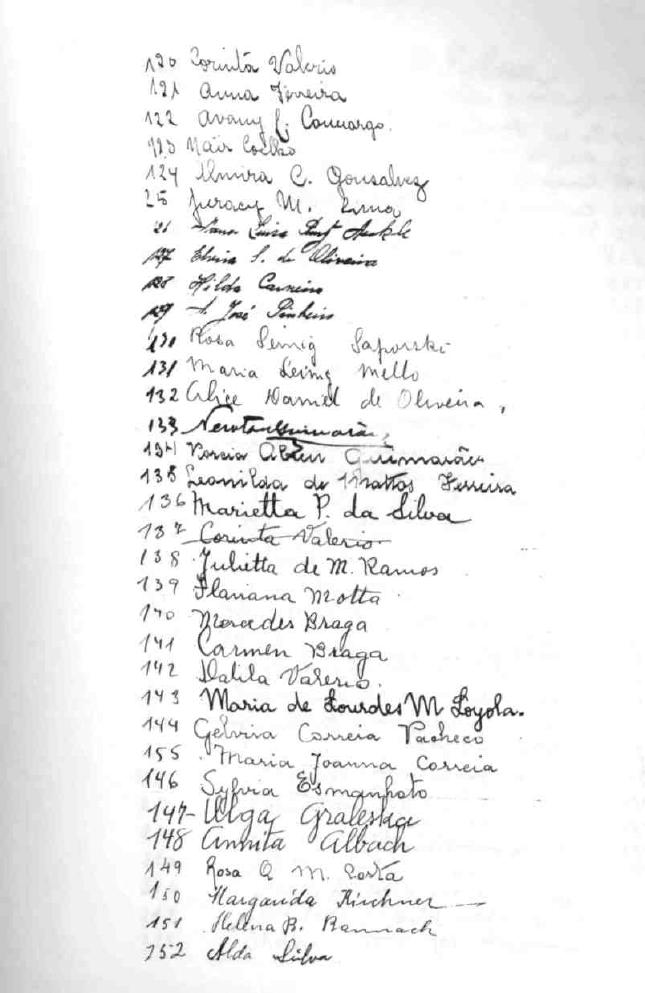 120 Corinta Valerio
121 Anna Ferreira
122 Avany C. Camargo.
123 Nair Coelho
124 Elmira C. Gonsalvez
25 Juracy M. Lima
26 Luisa
127 Elvira S. de Oliveira
128 Hilda Carneiro
129 José Pinheiro
130 Rosa Leinig Saporski
131 Maria Leinig Mello
132 Alice Daniel de Oliveira,
133 Newton Guimarães
134 Abreu Guimarães
135 Leonilda de Mattos Ferreira
136 Marietta P. da Silva
137 Corinta Valerio
138 Julietta de M. Ramos
139 Flaviana Motta
140 Mercedes Braga
141 Carmen Braga
142 Dalila Valerio.
143 Maria de Lourdes M Loyola.
144 Gelvira Correia Pacheco
155 Maria Joanna Correia
146 Sylvia Esmanhoto
147- Olga Graleska
148 Annita Albach
149 Rosa Q M. Costa
150 Margarida Kirchner
151 Helena B. Bannach
152 Alda Silva